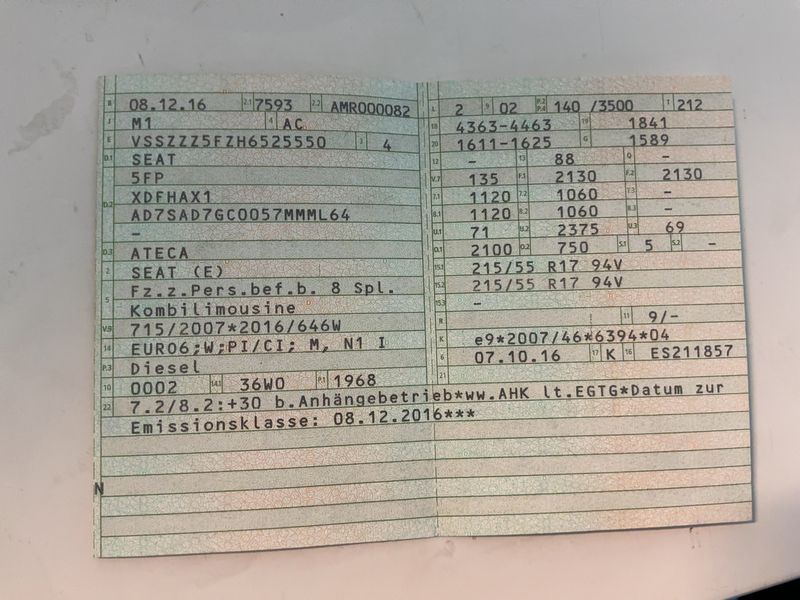 B 08.12.16 2.1 7593 2.2 AMR000082
J M1 4 AC
E VSSZZZ5FZH6525550 3 4
D.1 SEAT
5FP
D.2 XDFHAX1
AD7SAD7GC0057MMML64
–
D.3 ATECA
2 SEAT (E)
5 Fz.z.Pers.bef.b. 8 Spl.
Kombilimousine
V.9 715/2007*2016/646W
14 EURO6;W;PI/CI; M, N1 I
P.3 Diesel
10 0002 14.1 36W0 P.1 1968
22 7.2/8.2:+30 b.Anhängebetrieb*ww.AHK lt.EGTG*Datum zur
Emissionsklasse: 08.12.2016***
N
L 2 9 02 P.2 P.4 140 /3500 T 212
18 4363-4463 19 1841
20 1611-1625 G 1589
12 – 13 88 Q –
V.7 135 F.1 2130 F.2 2130
7.1 1120 7.2 1060 7.3 –
8.1 1120 8.2 1060 8.3 –
U.1 71 U.2 2375 U.3 69
O.1 2100 O.2 750 S.1 5 S.2 –
15.1 215/55 R17 94V
15.2 215/55 R17 94V
15.3 –
R 11 9/–
K e9*2007/46*6394*04
6 07.10.16 17 K 16 ES211857
21